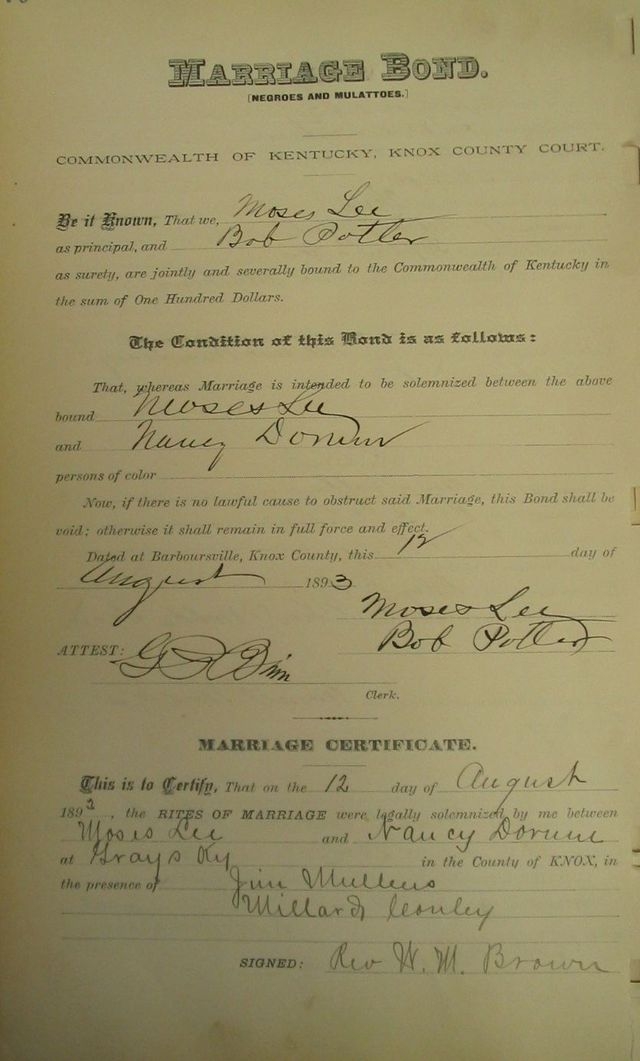 MARRIAGE BOND.
[NEGROES AND MULATTOES.]
COMMONWEALTH OF KENTUCKY, KNOX COUNTY COURT.
Be it Known, That we, Moses Lee
as principal, and Bob Potter
as surety, are jointly and severally bound to the Commonwealth of Kentucky in
the sum of One Hundred Dollars.
The Condition of this Bond is as follows:
That, whereas Marriage is intended to be solemnized between the above
bound Moses Lee
and Nancy
persons of color
Now, if there is no lawful cause to obstruct said Marriage, this Bond shall be
void; otherwise it shall remain in full force and effect.
Dated at Barboursville, Knox County, this 12 day of
August 1893
Moses Lee
Bob Potter
ATTEST:
Clerk.
MARRIAGE CERTIFICATE.
This is to Certify, That on the 12 day of August
189 , the RITES OF MARRIAGE were legally solemnized by me between
Moses Lee and Nancy
at Grays Ky in the County of KNOX, in
the presence of Jim Mullens
Millard Conley
SIGNED: Rev W. M. Brown